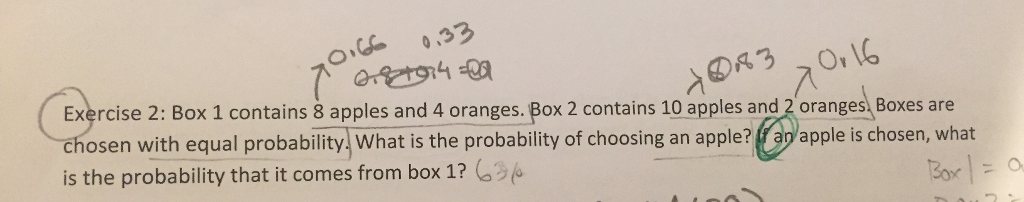 0.66 0.33
0.83 0.16
Exercise 2: Box 1 contains 8 apples and 4 oranges. Box 2 contains 10 apples and 2 oranges. Boxes are
chosen with equal probability. What is the probability of choosing an apple? If an apple is chosen, what
is the probability that it comes from box 1? 63%
Box 1 = 0